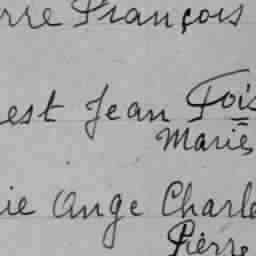 rre François
est Jean Fois
Mariés
ie Ange Charle
Pierre